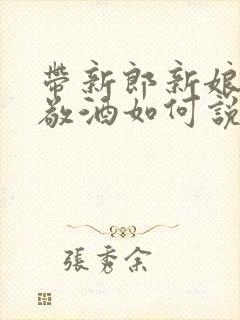 帶新郎新娘
敬酒如何說
張秀余